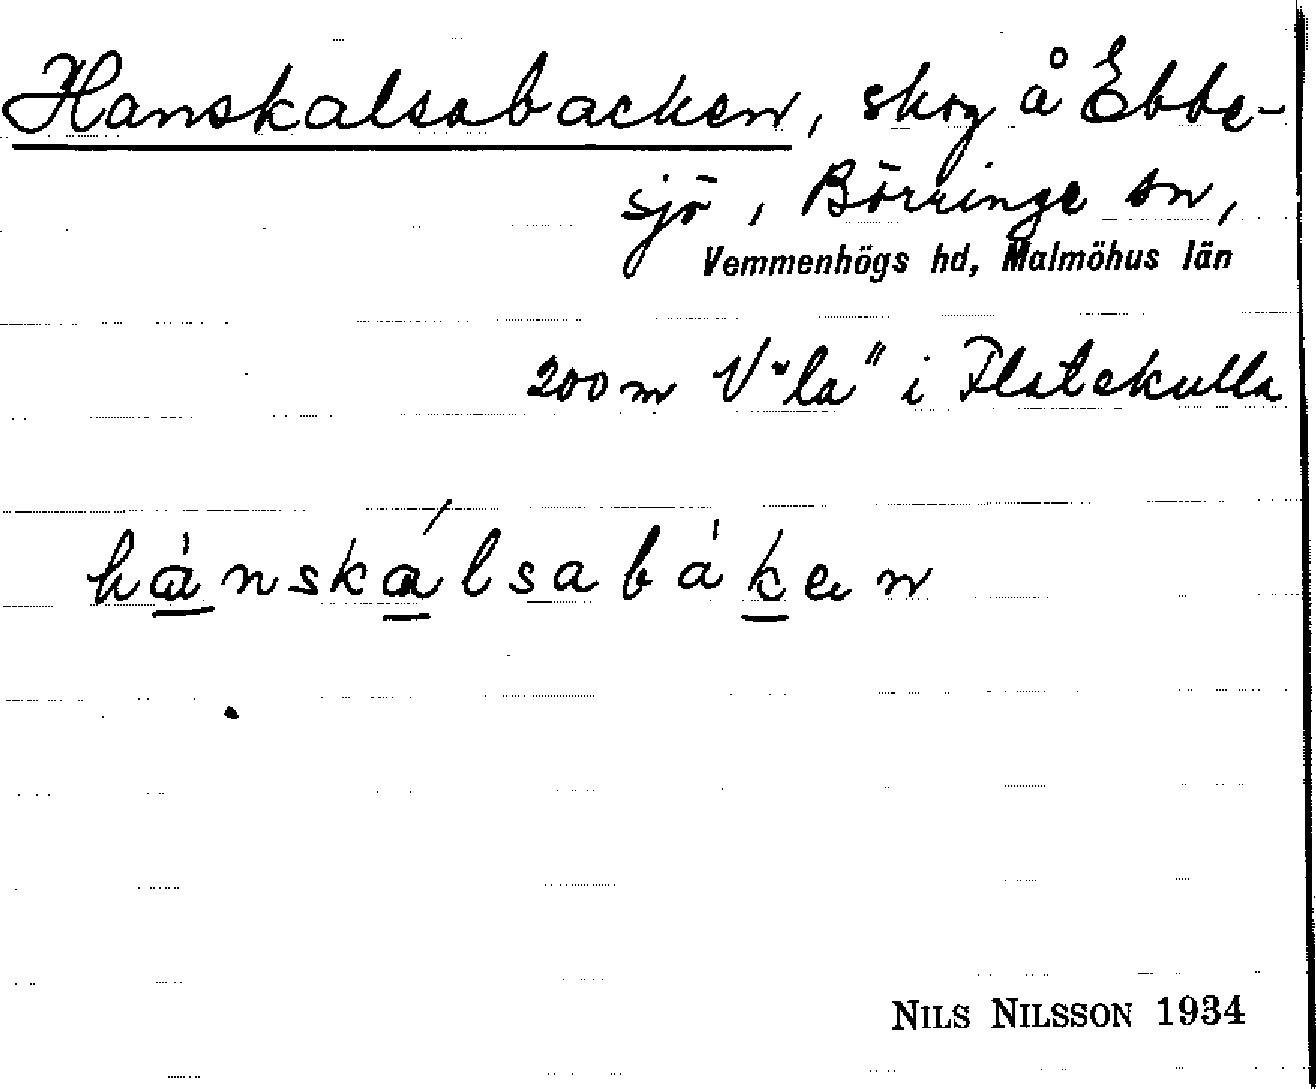 Hanskalsabacken, skog å Ebbe-
sjö, Börringe sn,
Vemmenhögs hd, Malmöhus län
200 m V "la" i Flatekulla
hànskálsabàken
NILS NILSSON 1934